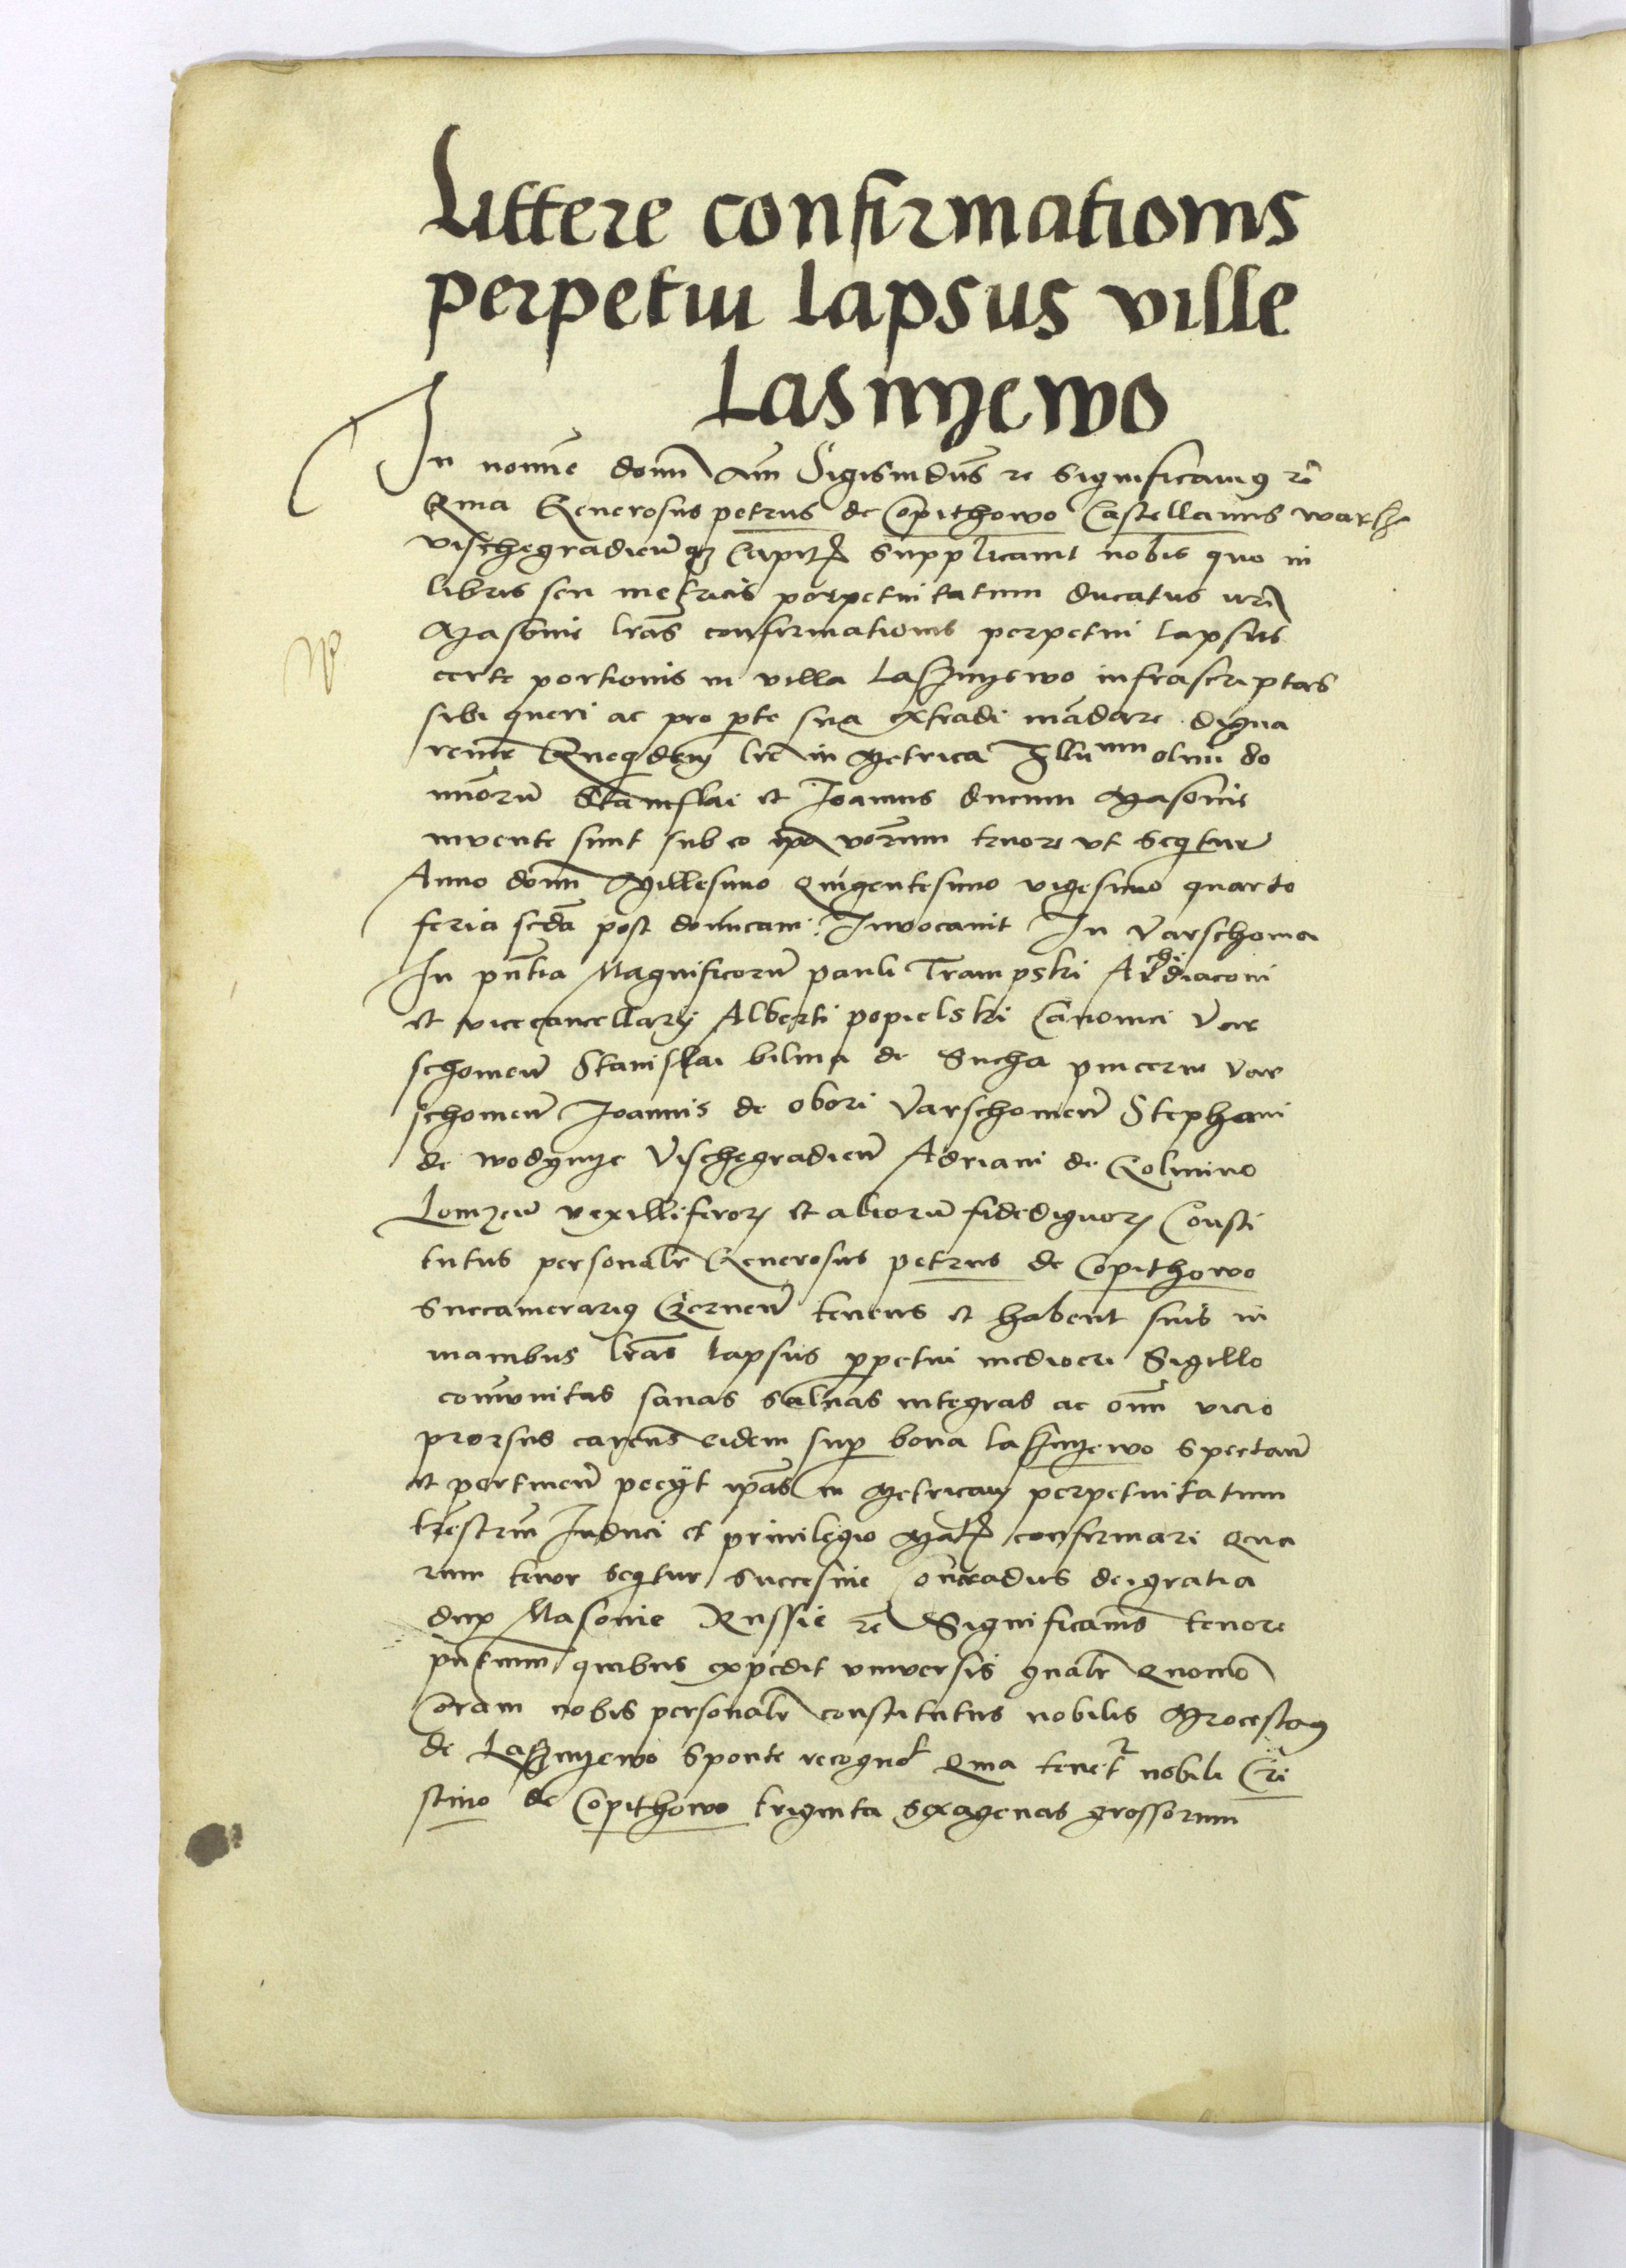 Littere confirmationis
perpetui lapsus ville
Lasnyewo
In nomīe domī Am Sigismdūs rc significamꝰ rc
Qma Generosus petrus de Copithowo Castellanus warsche
vischegradieñ qȝ Capitꝭ supplicauit nobis quo in
libris seu metricis perpetuitatum ducatus nrī
Masouie lrās confirmationis perpetui lapsus
certe portionis in villa Lasznyewo infrascriptas
sibi queri ac pro pte sua extradi mādare digna
remr Queqdem lrē in Metrica Illu mm olim do
minorū Stanislai et Joannis ducum Masouie
inuente sunt sub eo vorum tenore vt seqitur
Anno domī Millesimo quīgentesimo vigesimo quarto
feria scdā post domīcam Inuocauit In Varschouia
In pñtia Magnificorū pauli Trampski Archidiaconi
et vicecancellarij Alberti popielski Canonici Var
schouieñ Stanislai bilina de Sucha pincerne Var
schouieñ Joannis de obori Varschouieñ Stephani
de wodynye Vischegradieñ Adriani de Colnino
Lomzeñ vexilliferorꝝ et aliorū fidedignorꝝ Consti
tutus personalr Generosus petrus de Copithowo
Succamerariꝰ Czerneñ tenens et habent suis in
manibus lrās lapsus ppetui mediocri Sigillo
comunitas sanas saluas integras ac omī vicio
prorsus carens eidem sup bona Lasznyewo spectañ
et pertineñ pecijt ipas in Metricam perpetuitatum
trestrem Induci et priuilegio Matꝭ confirmari Qua
rum tenor seqitur succesiue Conradus dei gratia
dux Masouie Russie rc Significamꝰ tenore
pñtium quibus expedit vniuersis gnalr Quomo
Coram nobis personalr constitutus nobilis Mrocestaꝰ
de Lasznyewo sponte recognoꝭ Qma tenetr nobili Cri
stino de Copithowo triginta sexagenas grossorum